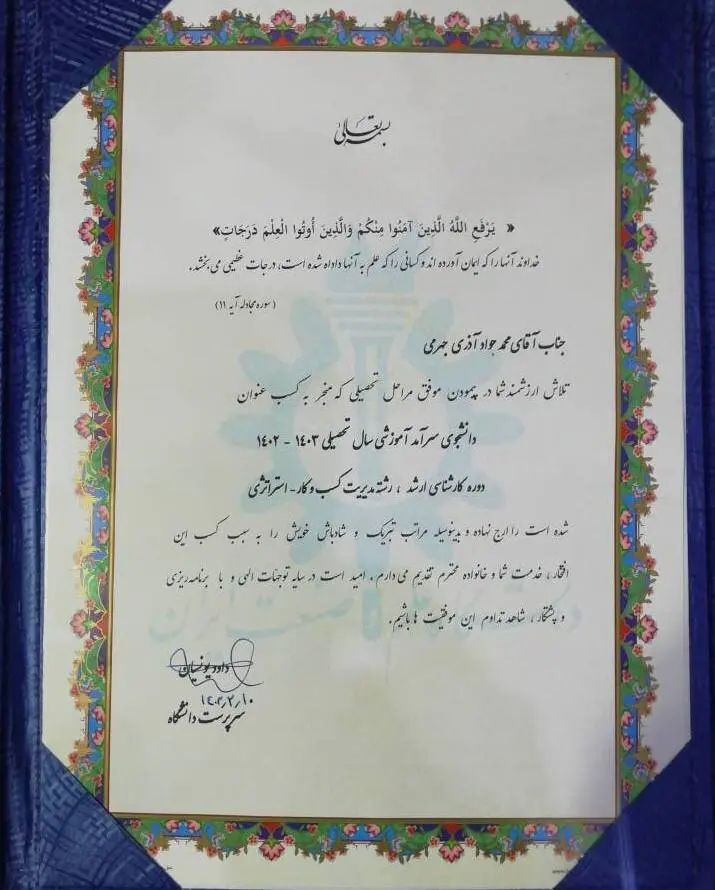 بسمه تعالی
« يَرْفَعِ اللَّهُ الَّذِينَ آمَنُوا مِنْكُمْ وَالَّذِينَ أُوتُوا الْعِلْمَ دَرَجَاتٍ»
خداوند آنها را که ایمان آورده اند و کسانی را که علم به آنها داداه شده است، درجات عظیمی می بخشد.
(سوره مجادله آیه ۱۱)
جناب آقای محمد جواد آذری جهرمی
تلاش ارزشمند شما در پیمودن موفق مراحل تحصیلی که منجر به کسب عنوان
دانشجوی سرآمد آموزشی سال تحصیلی ۱۴۰۳ - ۱۴۰۲
دوره کارشناسی ارشد ، رشته مدیریت کسب و کار - استراتژی
شده است را ارج نهاده و بدینوسیله مراتب تبریک و شادباش خویش را به سبب کسب این
افتخار ، خدمت شما و خانواده محترم تقدیم می دارم . امید است در سایه توجهات الهی و با برنامه ریزی
و پشتکار ، شاهد تداوم این موفقیت ها باشیم.
داود یونسیان
سرپرست دانشگاه
علم و صنعت ایران